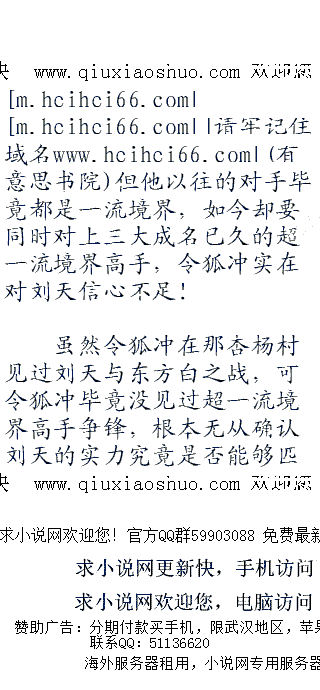 快 www.qiuxiaoshuo.com 欢迎您
[m.hcihci66.com|
[m.hcihci66.com||请牢记住
域名www.hcihci66.com|(有
意思书院)但他以往的对手毕
竟都是一流境界，如今却要
同时对上三大成名已久的超
一流境界高手，令狐冲实在
对刘天信心不足！
虽然令狐冲在那杏杨村
见过刘天与东方白之战，可
令狐冲毕竟没见过超一流境
界高手争锋，根本无从确认
刘天的实力究竟是否能够匹
快 www.qiuxiaoshuo.com 欢迎您
求小说网欢迎您！官方QQ群59903088 免费最新
求小说网更新快，手机访问
求小说网欢迎您，电脑访问
赞助广告：分期付款买手机，限武汉地区，苹果
联系QQ：51136620
海外服务器租用，小说网专用服务器